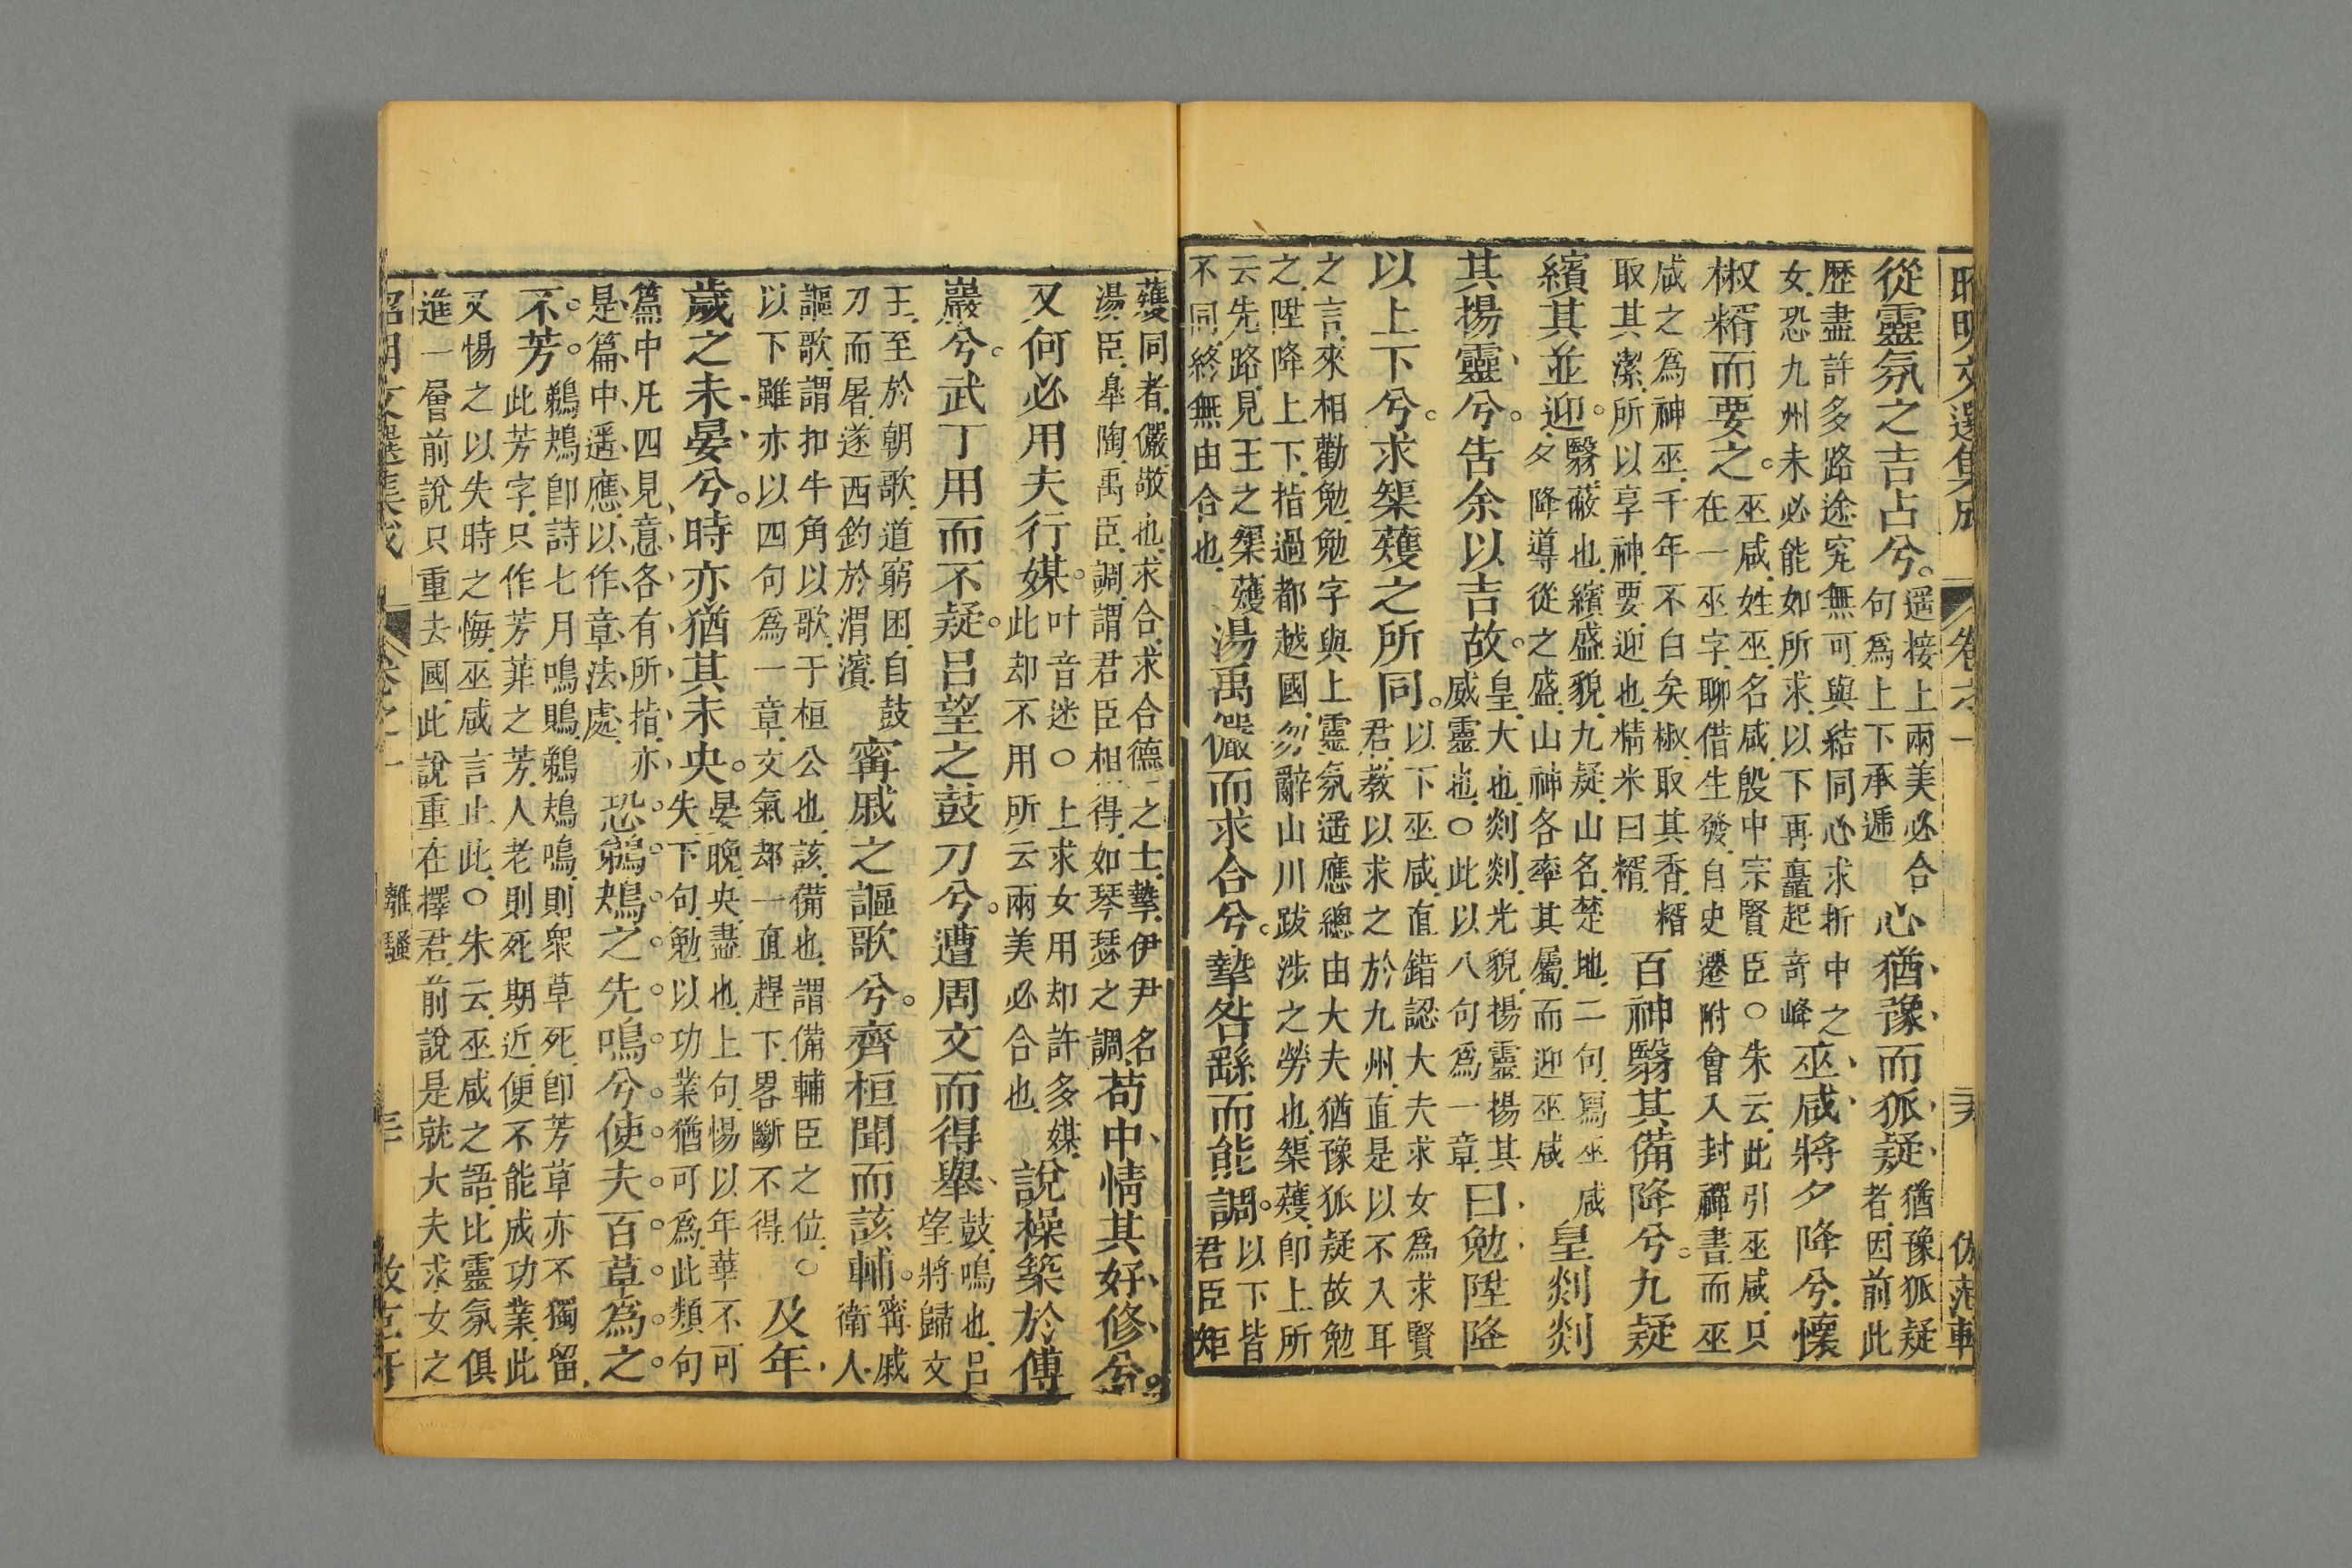 昭明文選集成
從靈氛之吉占兮。
遥接上兩美必合
句爲上下承遞
心猶豫而狐疑
猶豫狐疑
者因前此
歷盡許多路途究無可與結同心求折中之
女恐九州未必能如所求以下再矗起奇峰
巫咸將夕降兮懷
椒糈而要之。
巫咸姓巫名咸殷中宗賢臣○朱云此引巫咸只
在一巫字聊借生發自史遷附會入封禪書而巫
咸之爲神巫千年不白矣椒取其香糈
取其潔所以享神要迎也精米曰糈
百神翳其備降兮。九疑
繽其並迎。
翳蔽也繽盛貌九疑山名楚地二句寫巫咸
夕降導從之盛山神各率其屬而迎巫咸
皇剡剡
其揚靈兮。告余以吉故。
皇大也剡剡光貌揚靈揚其
威靈也○此以八句爲一章
曰勉陞降
以上下兮。求榘矱之所同。
以下巫咸直錯認大夫求女爲求賢
君教以求之於九州直是以不入耳
之言來相勸勉勉字與上靈氛遥應總由大夫猶豫狐疑故勉
之陞降上下指過都越國勿辭山川跋涉之勞也榘矱即上所
云先路見王之榘矱
不同終無由合也
湯禹儼而求合兮。摯咎繇而能調。
以下皆
君臣矩
矱同者儼敬也求合求合德之士摯伊尹名
湯臣皐陶禹臣調謂君臣相得如琴瑟之調
苟中情其好修兮。
又何必用夫行媒。
叶音迷○上求女用却許多媒
此却不用所云兩美必合也
說操築於傅
巖兮。武丁用而不疑。呂望之鼓刀兮。遭周文而得舉
鼓鳴也呂
望將歸文
王至於朝歌道窮困自鼓
刀而屠遂西釣於渭濱
甯戚之謳歌兮。齊桓聞而該輔。
甯戚
衛人
謳歌謂扣牛角以歌于桓公也該備也謂備輔臣之位○
以下雖亦以四句爲一章文氣却一直趕下畧斷不得
及年
歲之未晏兮。時亦猶其未央。
晏晚央盡也上句惕以年華不可
失下句勉以功業猶可爲此類句
篇中凡四見意各有所指亦
是篇中遥應以作章法處
恐鵜鴂之先鳴兮使夫百草爲之
不芳。
鵜鴂即詩七月鳴鵙鵜鴂鳴則衆草死即芳草亦不獨留
此芳字只作芳菲之芳人老則死期近便不能成功業此
又惕之以失時之悔巫咸言止此○朱云巫咸之語比靈氛俱
進一層前說只重去國此說重在擇君前說是就大夫求女之
昭明文選集成
卷之一
離騷
三十